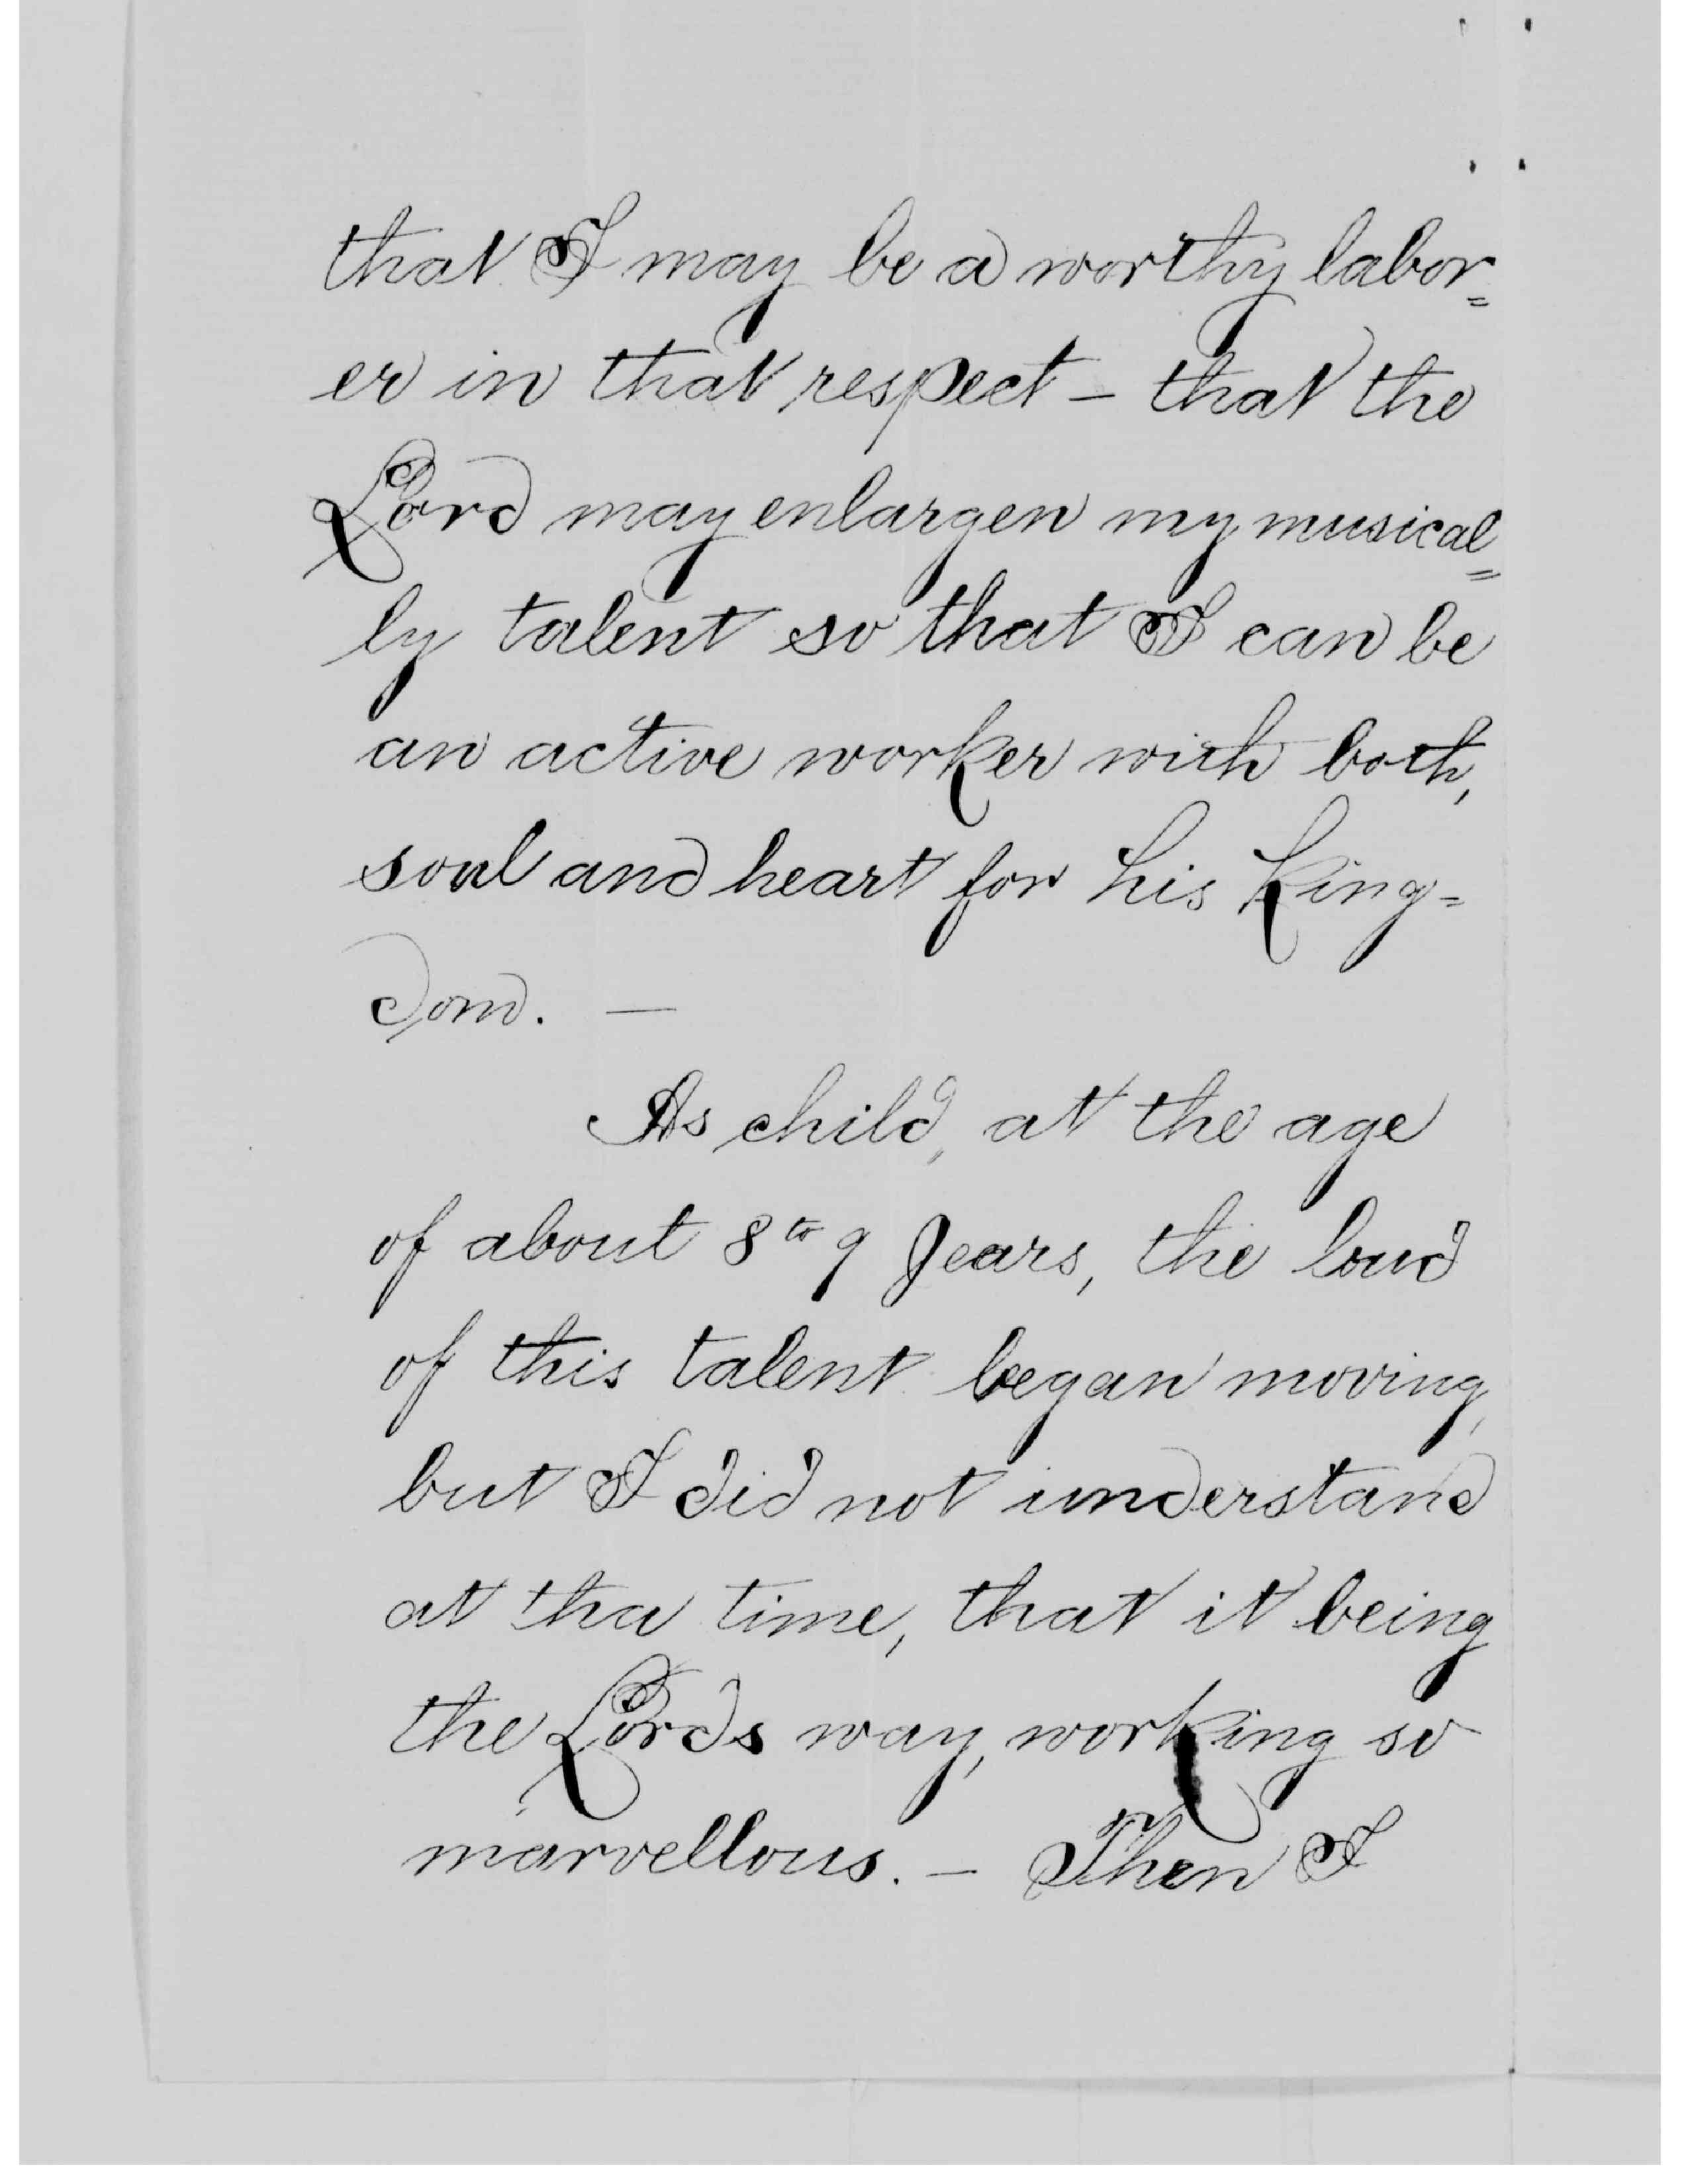 that I may be a worthy labor=
er in that respect – that the
Lord may enlargen my musical=
ly talent so that I can be
an active worker with both,
soul and heart for his King=
dom. —
As child, at the age
of about 8 to 9 Years, the
of this talent began moving,
but I did not understand
at tha time, that it being
the Lords way, working so
marvellous. – Then I